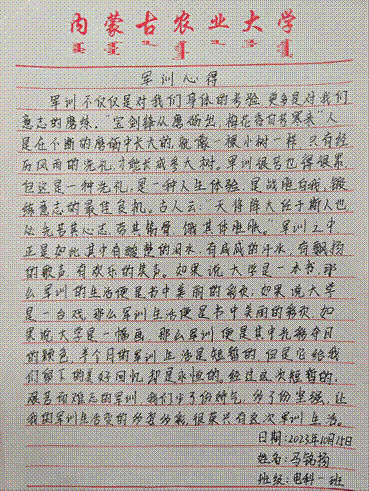 内蒙古农业大学
军训心得
军训不仅仅是对我们身体的考验,更多是对我们
意志的磨练。"宝剑锋从磨砺出,梅花香自苦寒来"人
是在不断的磨砺中长大的,就像一棵小树一样,只有经
历风雨的洗礼,才能长成参天大树。军训很苦也得很累
但这是一种洗礼,是一种人生体验,是战胜自我,锻
练意志的最佳良机。古人云:"天将降大任于斯人也,
必先苦其心志,劳其筋骨,饿其体肤。"军训之中
正是如此,其中有酸楚的泪水,有咸咸的汗水,有飘扬
的歌声,有欢乐的笑声。如果说大学是一本书,那
么军训的生活便是书中美丽的彩页,如果说大学
是一台戏,那么军训生活便是书中美丽的彩页,如
果说大学是一幅画,那么军训便是其中扎移夺目
的颜色,半个月的军训生活是短暂的,但是它给我
们留下的美好回忆却是永恒的。经过这次短暂的,
艰苦而难忘的军训,我们少了份娇气,多了份坚强,让
我的军训生活变的多姿多彩,很荣兴有这次军训生活。
日期:2023年10月15日
姓名:马铭扬
班级:电科一班